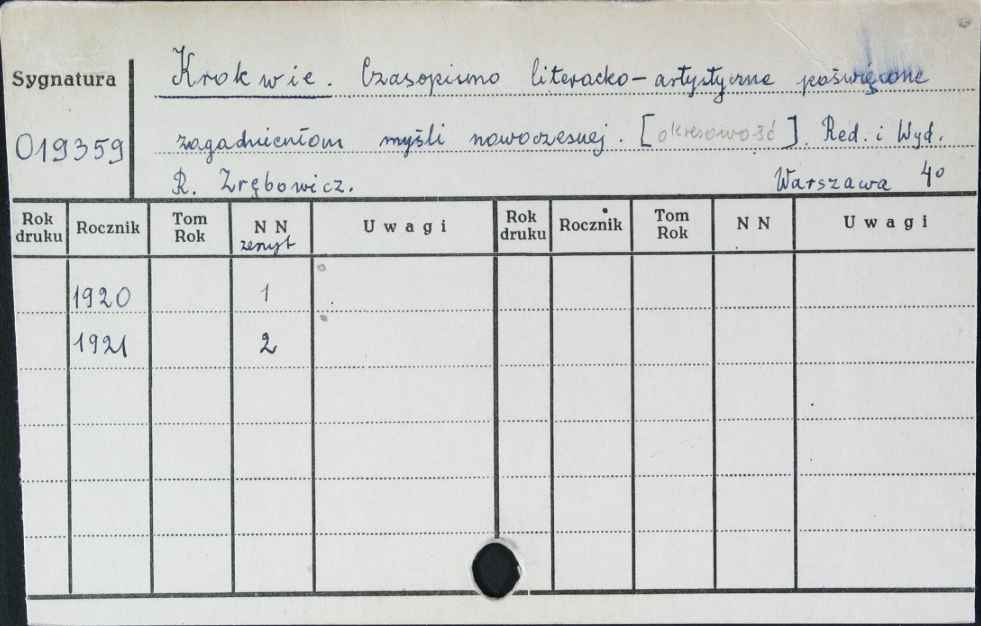 Sygnatura
Krokwie. Czasopismo literacko-artystyczne poświęcone
019359
zagadnieniom myśli nowoczesnej. [okresowość]. Red. i Wyd.
R. Zrębowicz. Warszawa 4°
Rok druku Rocznik Tom Rok N N zeszyt Uwagi Rok druku Rocznik Tom Rok N N Uwagi
1920 1
1921 2